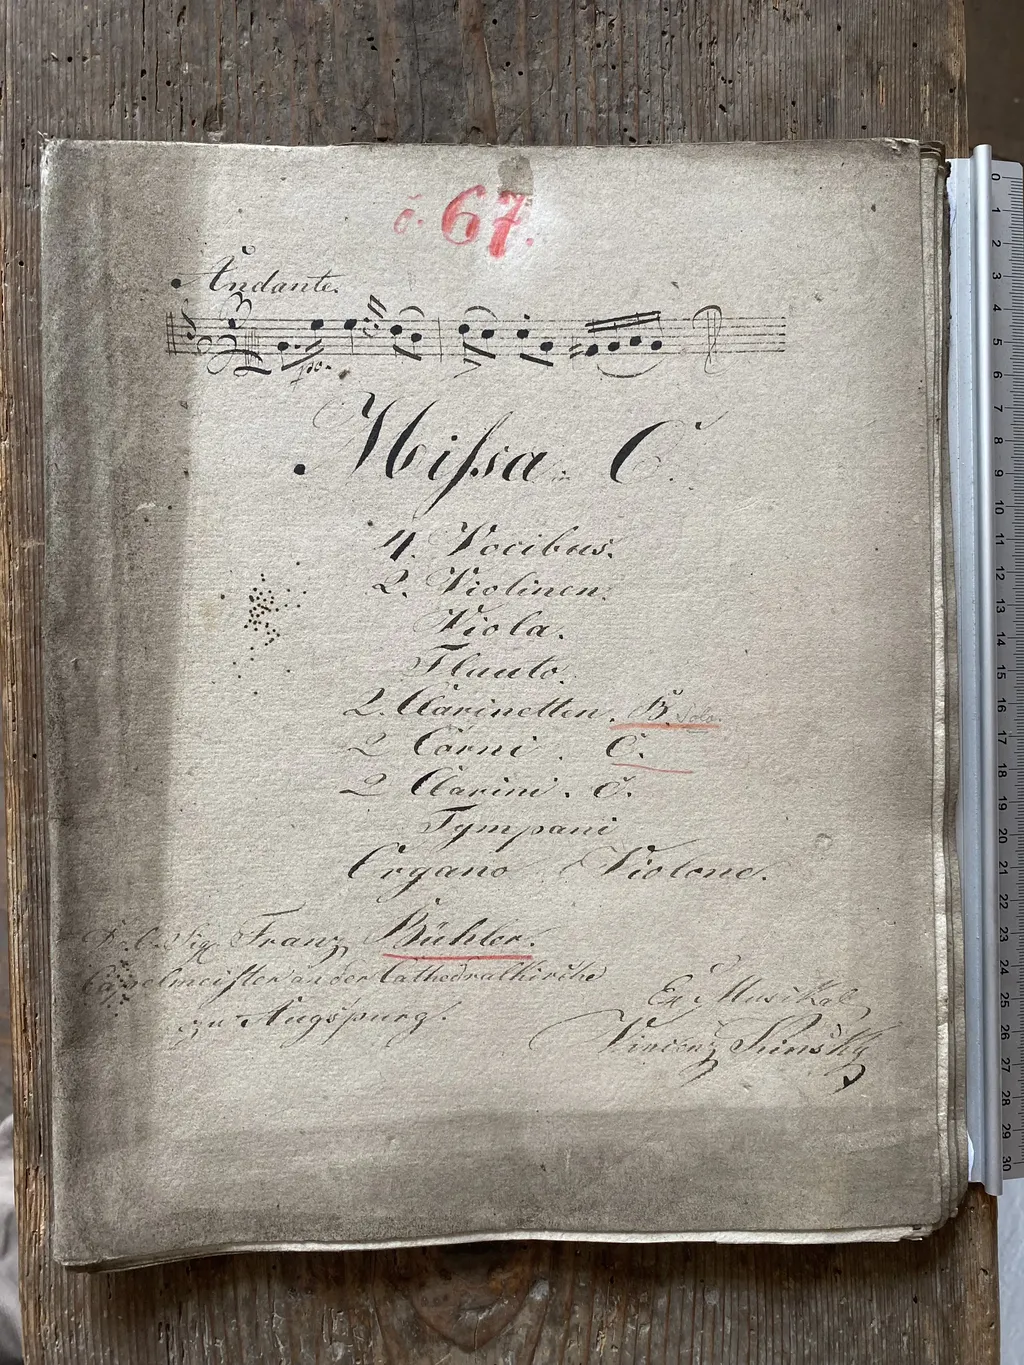 č. 67.
Andante.
po.
Missa in C.
4. Vocibus.
2. Violinen.
Viola.
Flauto.
2. Clarinetten. B. Solo.
2 Corni. C.
2 Clarini. C.
Tympani
Organo Violone.
Del Sig. Franz Bühler.
Capelmeister an der Cathedralkirche
zu Augspurg.
Ex Musikal
Vincenz
0 1 2 3 4 5 6 7 8 9 10 11 12 13 14 15 16 17 18 19 20 21 22 23 24 25 26 27 28 29 30